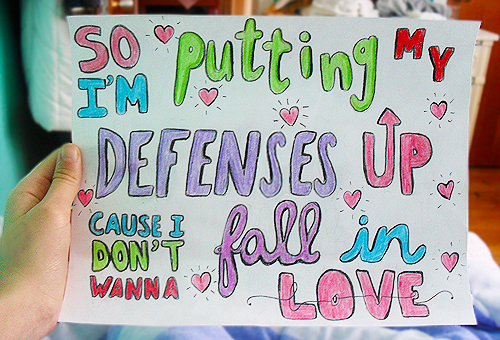 SO I'M putting MY
DEFENSES UP
CAUSE I DON'T WANNA fall in LOVE